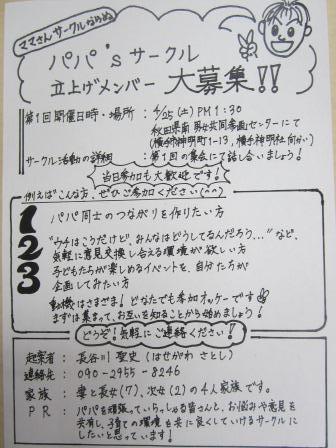 ママさんサークルならぬ
パパ'sサークル
立上げメンバー 大募集!!
第1回開催日時・場所 : 4/25(土)PM1:30
秋田県南男女共同参画センターにて
(横手市神明町1-13、横手神明社向かい)
サークル活動の詳細 : 第1回の集会にて話し合いましょう!
当日参加も大歓迎です!
例えば"こんな方、ぜひご参加ください(^^)
1 パパ同士のつながりを作りたい方
2 "ウチはこうだけど、みんなはどうしてるんだろう…"など、
気軽に意見交換し合える環境が欲しい方
3 子どもたちが楽しめるイベントを、自分たちが
企画してみたい方
動機はさまざま!どなたでも参加オッケーです
まずは集まって、お互いを知ることから始めましょう!
どうぞ!気軽にご連絡ください!
起案者 : 長谷川 聖史(はせがわ さとし)
連絡先 : 090-2955-8246
家族 : 妻と長女(7)、次女(2)の4人家族です。
PR : パパを頑張っていらっしゃる皆さんと、お悩みや意見も
共有し、子育ての環境を共に良くしていけるサークルに
したいと思っています!